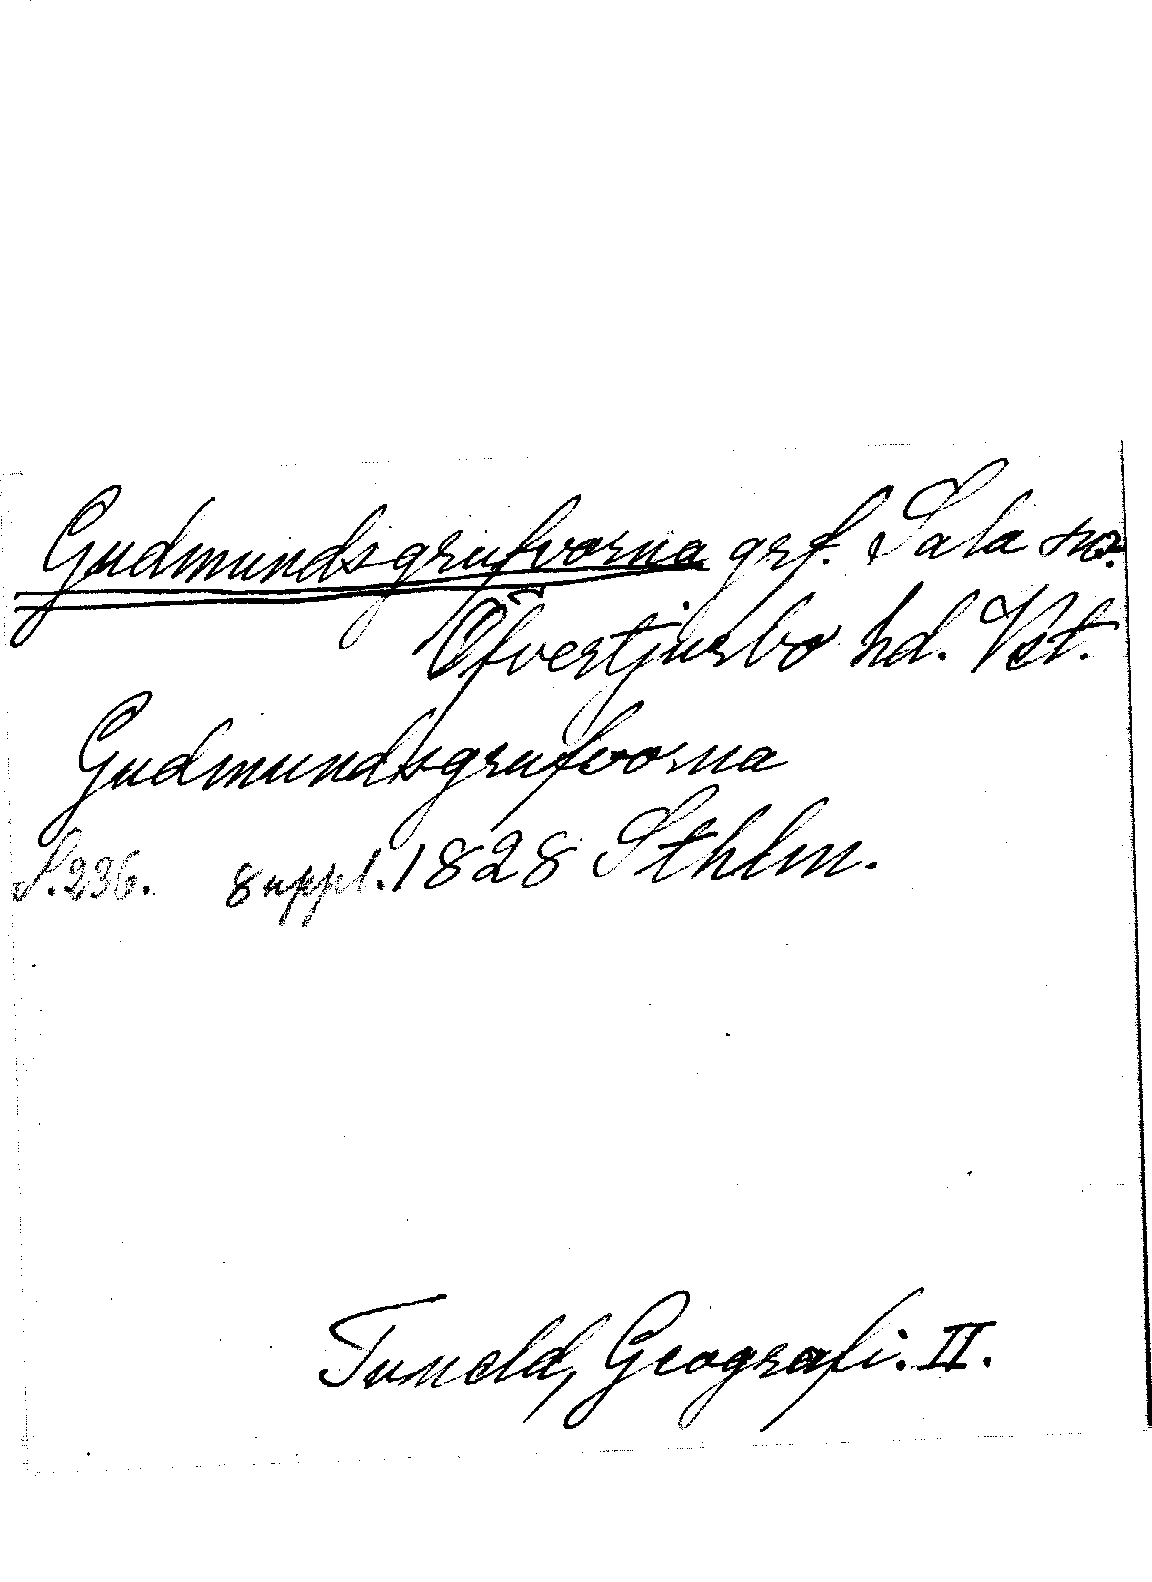 Gudmundsgrufvorna grf. Sala sn.
Öfvertjurbo hd. Vst.
Gudmundsgrufvorna
S. 236. suppl. 1828 Sthlm.
Tuneld, Geografi. II.